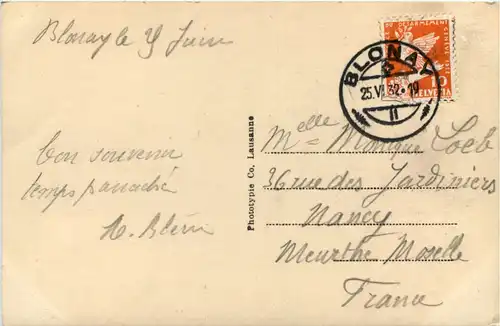 Blonay le 25 Juin
bon souvenir
temps panaché
Phototypie Co, Lausanne
DÉSARMEMENT
HELVETIA
10
BLONAY
25.VI.32-19
Melle Monique Loeb
36 rue des Jardiniers
Nancy
Meurthe Moselle
France